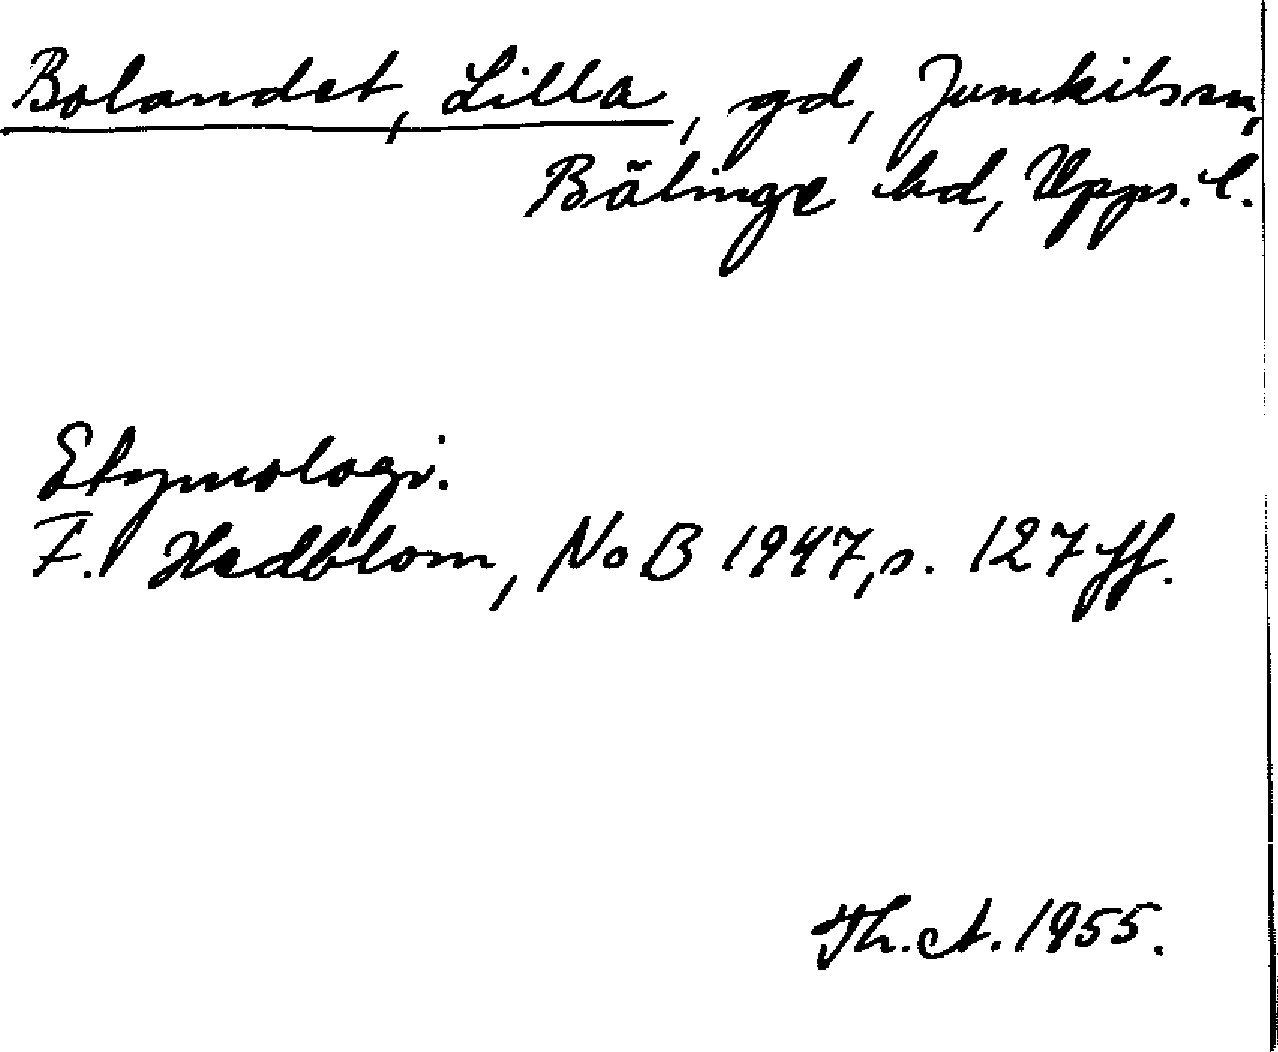 Bolandet, Lilla, gd, Jumkils sn,
Bälinge hd, Upps. l.
Etymologi.
F. Hedblom, NoB 1947, s. 127 ff.
Th. A. 1955.